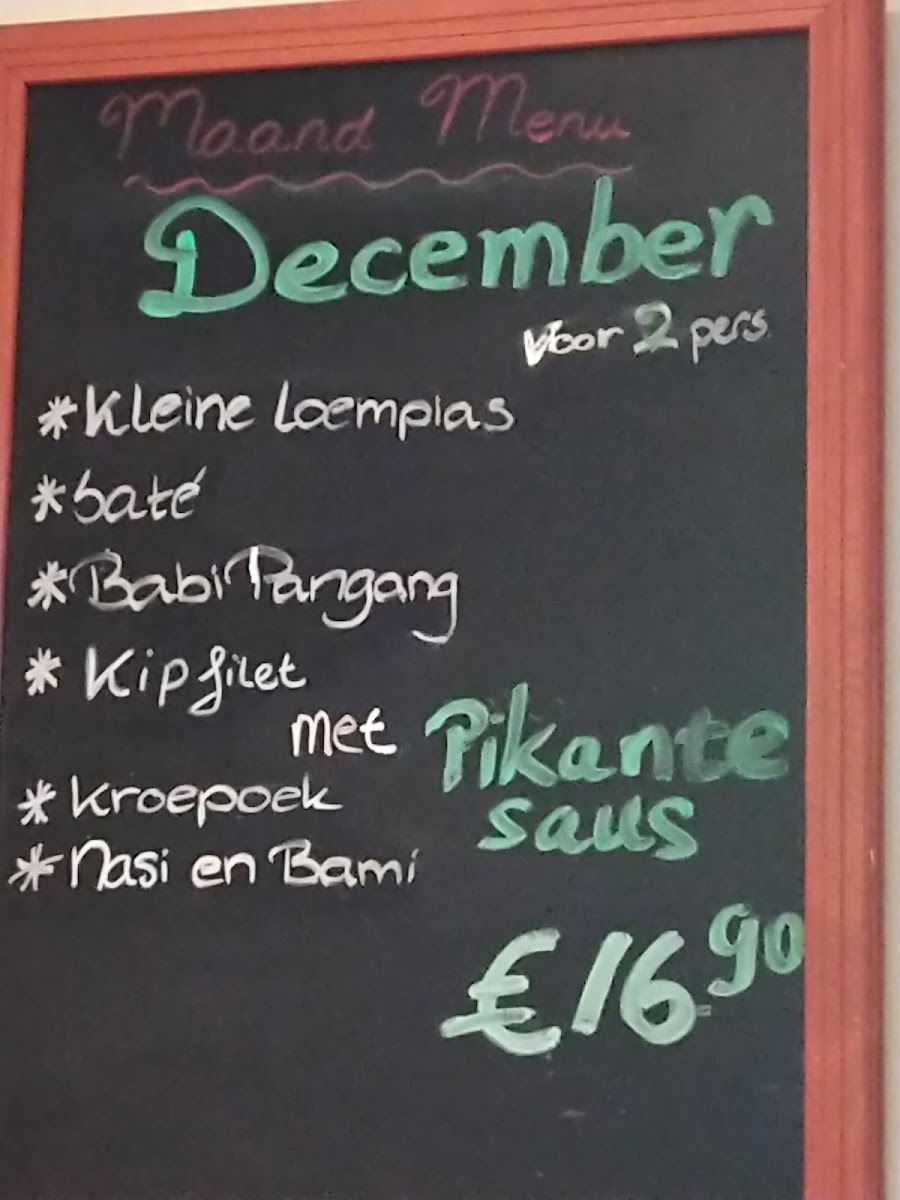 Maand Menu
December
voor 2 pers.
* Kleine Loempias
* Saté
* Babi Pangang
* Kipfilet
met Pikante
saus
* Kroepoek
* Nasi en Bami
€16.90